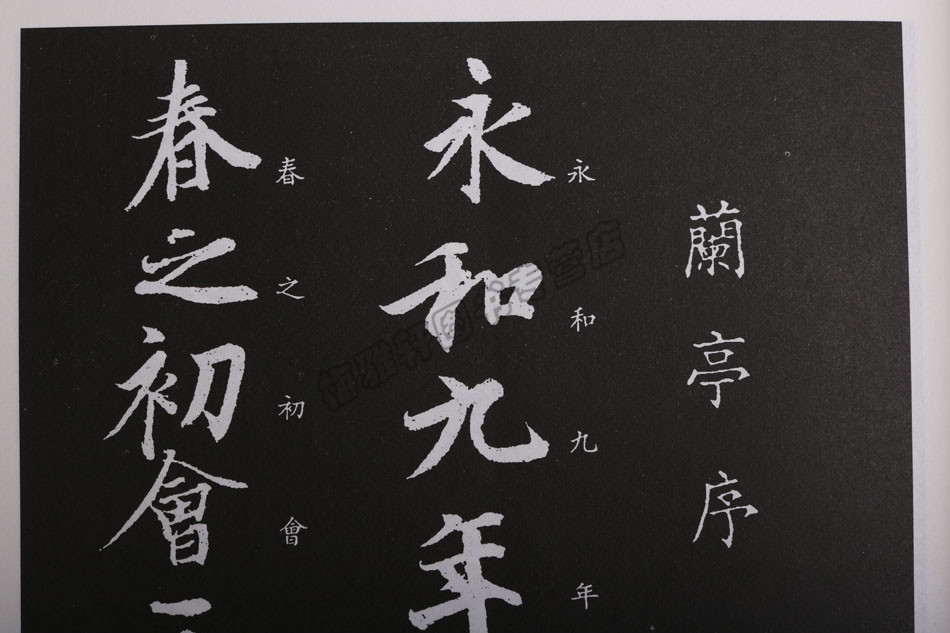 蘭亭序
永和九年
永和九年
春之初會
春之初會